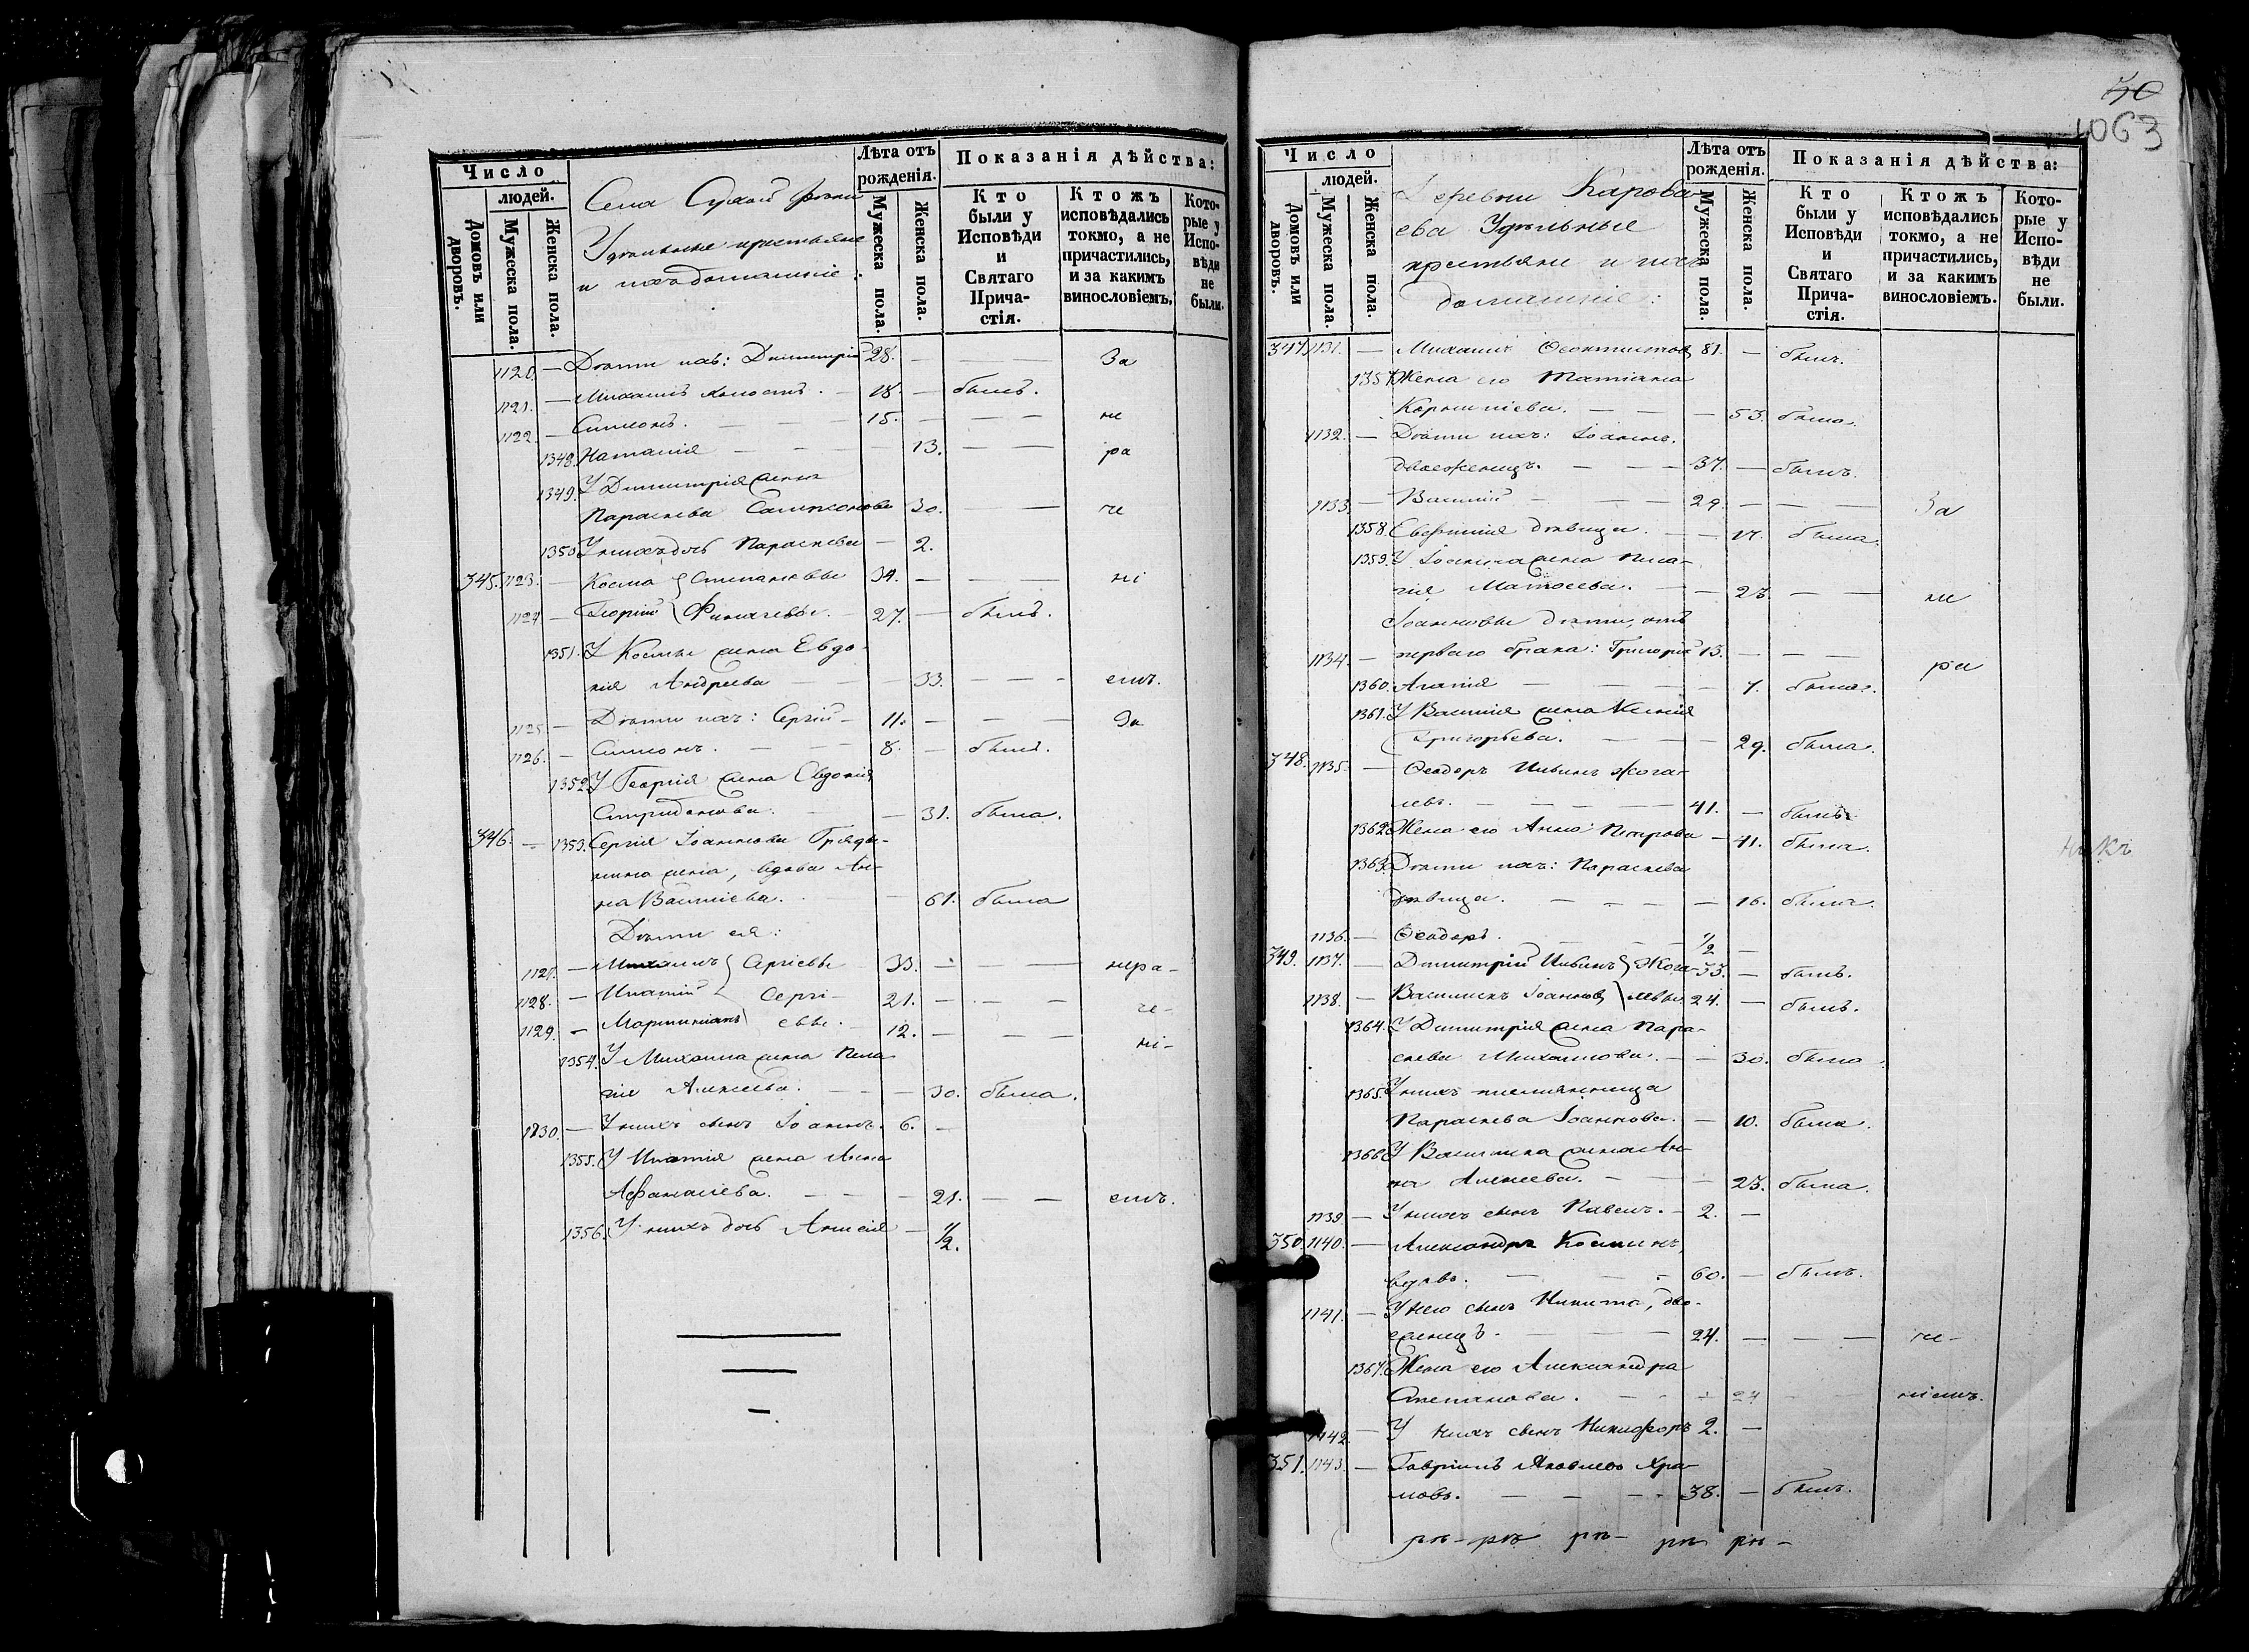 Число
людей.
Домовъ или дворовъ.
Мужеска пола.
Женска пола.
Села Сухой
Удѣльные крестьяне
и ихъ домашніе:
Лѣта отъ рожденія.
Мужеска пола.
Женска пола.
Показанія дѣйства:
Кто были у Исповѣди и Святаго Причастія.
Ктожъ исповѣдались токмо, а не причастились, и за какимъ винословіемъ.
Которые у Исповѣди не были.
1120. — Дѣти ихъ: Димитрій 28. — За
1121. — Михаилъ холостъ. — 18. — былъ.
1122. — Симеонъ. — 15. — не
1348. Наталія — 13. — ра
1349. У Димитрія жена
Параскева Самсонова 30. — че
1350. У нихъ дочь Параскева — 2.
345. 1123. — Косма } Степановы 34. — ні
1124. — Георгій } 27. — былъ.
1351. У Космы жена Евдо-
кія Андреева — 33. — емъ.
1125. — Дѣти ихъ: Сергій — 11. — За
1126. — Симеонъ. — 8. — былъ.
1352. У Георгія жена Евдокія
Спиридонова. — 31. была.
346. — 1353. Сергія Іоаннова
жена, вдова Ан-
на Васильева. — 61. была
Дѣти ея:
1127. — Михаилъ } Сергіевы 33. — нера-
1128. — Игнатій } Сергі- 21. — че-
1129. — Мартиніанъ } евы. 12. — ні-
1354. У Михаила жена Пела-
гія Алексѣева. — 30. была.
1130. — У нихъ сынъ Іоаннъ. 6. —
1355. У Игнатія жена Анна
Афанасіева. — 21. — емъ.
1356. У нихъ дочь Анисія — 1/2.
50
1063
Число
людей.
Домовъ или дворовъ.
Мужеска пола.
Женска пола.
Деревни Карова-
ева Удѣльные
крестьяне и ихъ
домашніе:
Лѣта отъ рожденія.
Мужеска пола.
Женска пола.
Показанія дѣйства:
Кто были у Исповѣди и Святаго Причастія.
Ктожъ исповѣдались токмо, а не причастились, и за какимъ винословіемъ.
Которые у Исповѣди не были.
347. 1131. — Михаилъ Ѳеоктистовъ 81. — былъ.
1357. Жена его Татіана
Корниліева. — 53. была.
1132. — Дѣти ихъ: Іоаннъ
двоеженецъ. — 37. — былъ.
1133. — Василій — 29. — За
1358. Евфимія дѣвица. — 17. была.
1359. У Іоанна жена Пела-
гія Матѳеева. — 27. — не
Іоанновы дѣти, отъ
1134. — перваго брака: Григорій 13. — ра
1360. Агафія — 7. была.
1361. У Василія жена Ксенія
Григорьева. — 29. была.
348. 1135. — Ѳеодоръ Ильинъ Жога-
левъ. — 41. — былъ.
1362. Жена его Анна Петрова — 41. была.
1363. Дѣти ихъ: Параскева
дѣвица. — 16. была.
1136. — Ѳеодоръ. — 1/2 —
349. 1137. — Димитрій Ильинъ } Жога- 33. — былъ.
1138. — Василискъ Іоанновъ } левы 24. — былъ.
1364. У Димитрія жена Пара-
скева Михайлова. — 30. была.
1365. У нихъ племянница
Параскева Іоаннова. — 10. была.
1366. У Василиска жена Ан-
на Алексѣева. — 23. была.
1139. — У нихъ сынъ Павелъ. — 2. —
350. 1140. — Александръ Косминъ,
вдовъ. — 60. — былъ.
1141. — У него сынъ Никита, дво-
еженецъ. — 24. — че-
1367. Жена его Александра
Степанова. — 24 — ніемъ.
1142. — У нихъ сынъ Никифоръ 2. —
351. 1143. — Гавріилъ Яковлевъ Хра-
мовъ. — 38. — былъ.